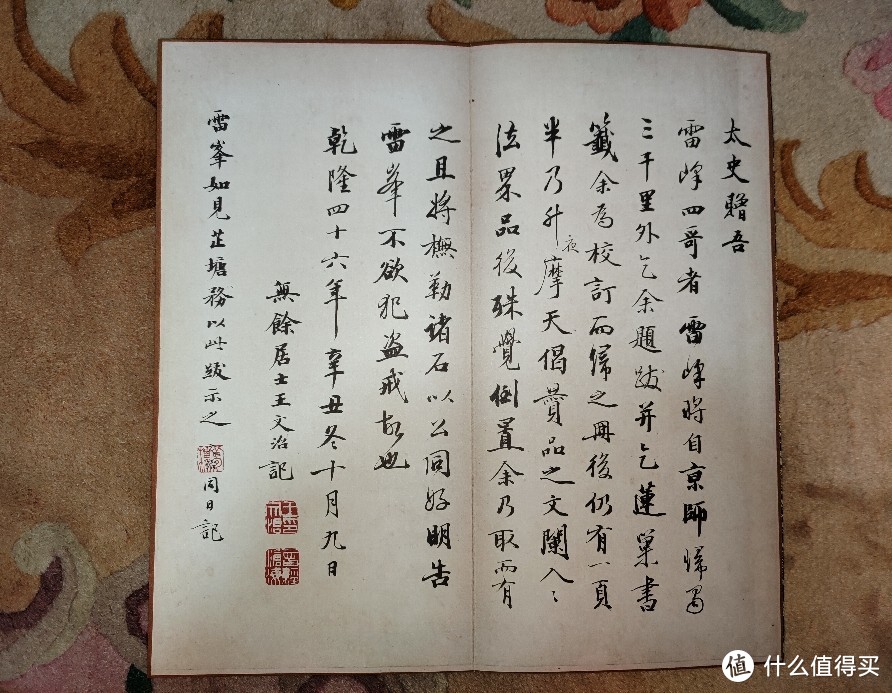 太史贈吾
雷峰四哥者雷峰將自京師歸蜀
三千里外乞余題跋并乞蓮巢書
籤余為校訂而歸之冊後仍有一頁
半乃升夜摩天偈贊品之文闌入
法眾品後殊覺倒置余乃取而有
之且將橅勒諸石以公同好明告
雷峯不欲犯盜戒故也
乾隆四十六年辛丑冬十月九日
無餘居士王文治記
雷峯如見芷塘務以此跋示之 同日記
值 什么值得买